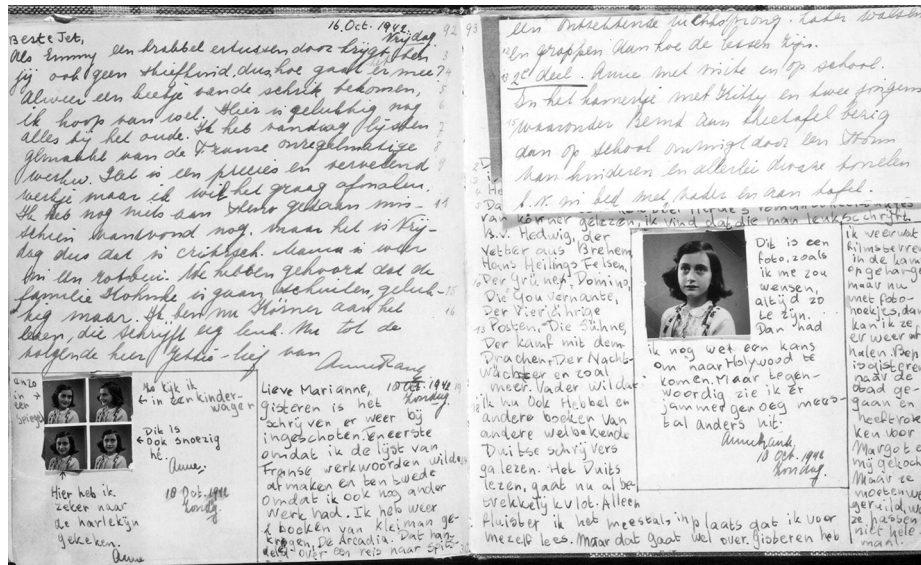 16 Oct. 1942
Vrijdag
92
Beste Jet,
Als Emmy een krabbel ertussendoor krijgt, ben
jij ook geen stiefkind, dus hoe gaat er mee?
Alweer een beetje van de schrik bekomen,
ik hoop van wel. Hier is gelukkig nog
alles bij het oude. Ik heb vandaag lijsten
gemaakt van de Franse onregelmatige
werkw. Het is een precies en vervelend
werkje maar ik wil het graag afmaken.
Ik heb nog niets aan steno gedaan mis-
schien vanavond nog. maar het is Vrij-
dag dus dat is critisch. Mama is weer
in een rotbui. We hebben gehoord dat de
familie is gaan schuilen, geluk-
kig maar. Ik ben nu Körner aan het
lezen, die schrijft erg leuk. Nu tot de
volgende keer Jetje-lief van
Anne Frank
anzo
in
een
Spiegel
Nu kijk ik
in een kinder-
wagen
Dit is
ook snoezig
hè.
Anne.
18 Oct. 1942
Zondag
Hier heb ik
zeker naar
de harlekijn
gekeken.
Anne
18 Oct. 1942
Zondag
Lieve Marianne,
gisteren is het
schrijven er weer bij
ingeschoten. Teneerste
omdat ik de lijst van
Franse werkwoorden wilde
afmaken en ten twede
omdat ik ook nog ander
werk had. Ik heb weer
2 boeken van kleiman ge-
kregen, De Arcadia. Dat han-
delt over een reis naar Spits-
93
een ontzettende luchtsprong. Later
en grappen dan hoe de lessen zijn.
2e deel. Anne met visite en op school.
In het kamertje met Kitty en twee jongens
waaronder Bernd aan theetafel bezig
dan op school omringd door een stroom
van kinderen en allerlei tonelen
b.v. in bed met vader en aan tafel.
van Körner gelezen, ik vind dat die man leuk schrijft.
B.v. Hedwig, der
Vetter aus Brehem
Hans Heilings Felsen,
Der Grüne Domino,
Die Gouvernante,
Der Vierjährige
Posten, Die Sühne,
Der Kamf mit dem
Drachen, Der Nacht-
wächter en zoal
meer. Vader wil dat
ik nu ook Hebbel en
andere boeken van
andere welbekende
Duitse schrijvers
ga lezen. Het Duits
lezen, gaat nu al be-
trekkelijk vlot. Alleen
fluister ik het meestal inplaats dat ik voor
mezelf lees. Maar dat gaat wel over. gisteren heb
Dit is een
foto, zoals
ik me zou
wensen,
altijd zo
te zijn.
Dan had
ik nog wel een kans
om naar Holywood te
komen. Maar tegen-
woordig zie ik er
jammer genoeg mees-
tal anders uit.
Anne Frank.
18 Oct. 1942
Zondag
ik weer wat
filmsterren
in de kam
opgehang
maar nu
met foto-
hoekjes, dan
kan ik ze
er weer af
halen. Bep
is gisteren
naar de
stad ge-
gaan en
heeft rok
ken voor
Margot e
mij gekoch
Maar ze
moeten w
geruild, wa
ze passen
niet hele-
maal.